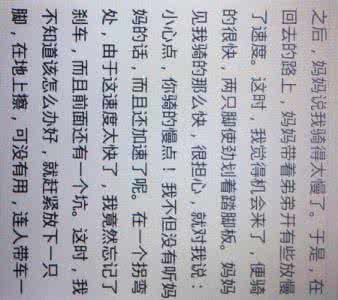 之后，妈妈说我骑得太慢了。于是，在
回去的路上，妈妈带着弟弟开有些放慢
了速度。这时，我觉得机会来了，便骑
的很快，两只脚使劲划着踏脚板。妈妈
见我骑的那么快，很担心，就对我说：
小心点，你骑的慢点！我不但没有听妈
妈的话，而且还加速了呢。在一个拐弯
处，由于这速度太快了，我竟然忘记了
刹车，而且前面还有一个坑。这时，我
不知道该怎么办好，就赶紧放下一只
脚，在地上擦，可没有用，连人带车一